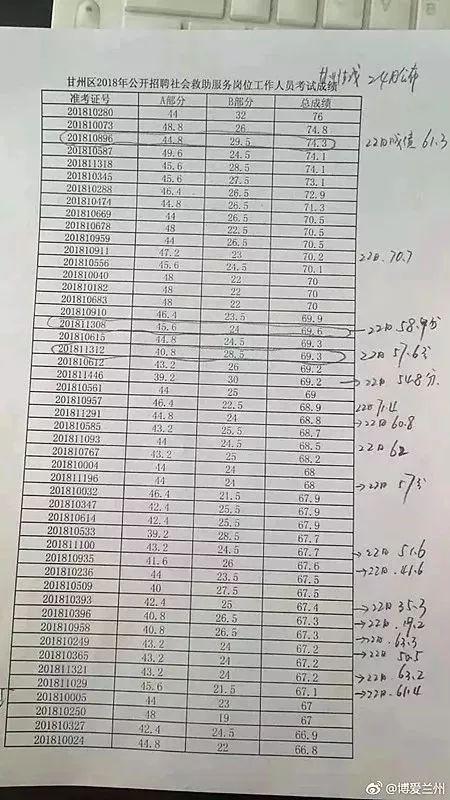 甘州区2018年公开招聘社会救助服务岗位工作人员考试成绩 24日公布
准考证号 A部分 B部分 总成绩
201810280 44 32 76
201810073 48.8 26 74.8
201810896 44.8 29.5 74.3 22日成绩 61.3
201810587 49.6 24.5 74.1
201811318 45.6 28.5 74.1
201810345 45.6 27.5 73.1
201810288 46.4 26.5 72.9
201810474 44.8 26.5 71.3
201810669 44 26.5 70.5
201810678 48 22.5 70.5
201810959 44 26.5 70.5
201810911 47.2 23 70.2 22日.70.7
201810556 45.6 24.5 70.1
201810040 48 22 70
201810182 48 22 70
201810683 48 22 70
201810910 46.4 23.5 69.9
201811308 45.6 24 69.6 22日 58.9分
201810615 44.8 24.5 69.3
201811312 40.8 28.5 69.3 22日 57.6分
201810612 43.2 26 69.2
201811446 39.2 30 69.2 22日 54.8分
201810561 44 25 69
201810957 46.4 22.5 68.9 22日 71.4
201811291 44.8 24 68.8 22日 60.8
201810585 43.2 25.5 68.7
201811093 44 24.5 68.5 22日 62
201810767 43.2 25 68.2
201810004 44 24 68
201811196 44 24 68 22日 57分
201810032 46.4 21.5 67.9
201810347 42.4 25.5 67.9
201810614 42.4 25.5 67.9
201810533 39.2 28.5 67.7
201811100 43.2 24.5 67.7 22日 51.6
201810935 41.6 26 67.6 22日.41.6
201810236 44 23.5 67.5
201810509 40 27.5 67.5
201810393 42.4 25 67.4 22日 35.3
201810396 40.8 26.5 67.3 22日.19.2
201810958 40.8 26.5 67.3 22日.63.3
201810249 43.2 24 67.2 22日 50.5
201810365 43.2 24 67.2
201811321 43.2 24 67.2 22日.63.2
201811029 45.6 21.5 67.1 22日.61.4
201810005 44 23 67
201810250 48 19 67
201810327 42.4 24.5 66.9
201810024 44.8 22 66.8
@博爱兰州